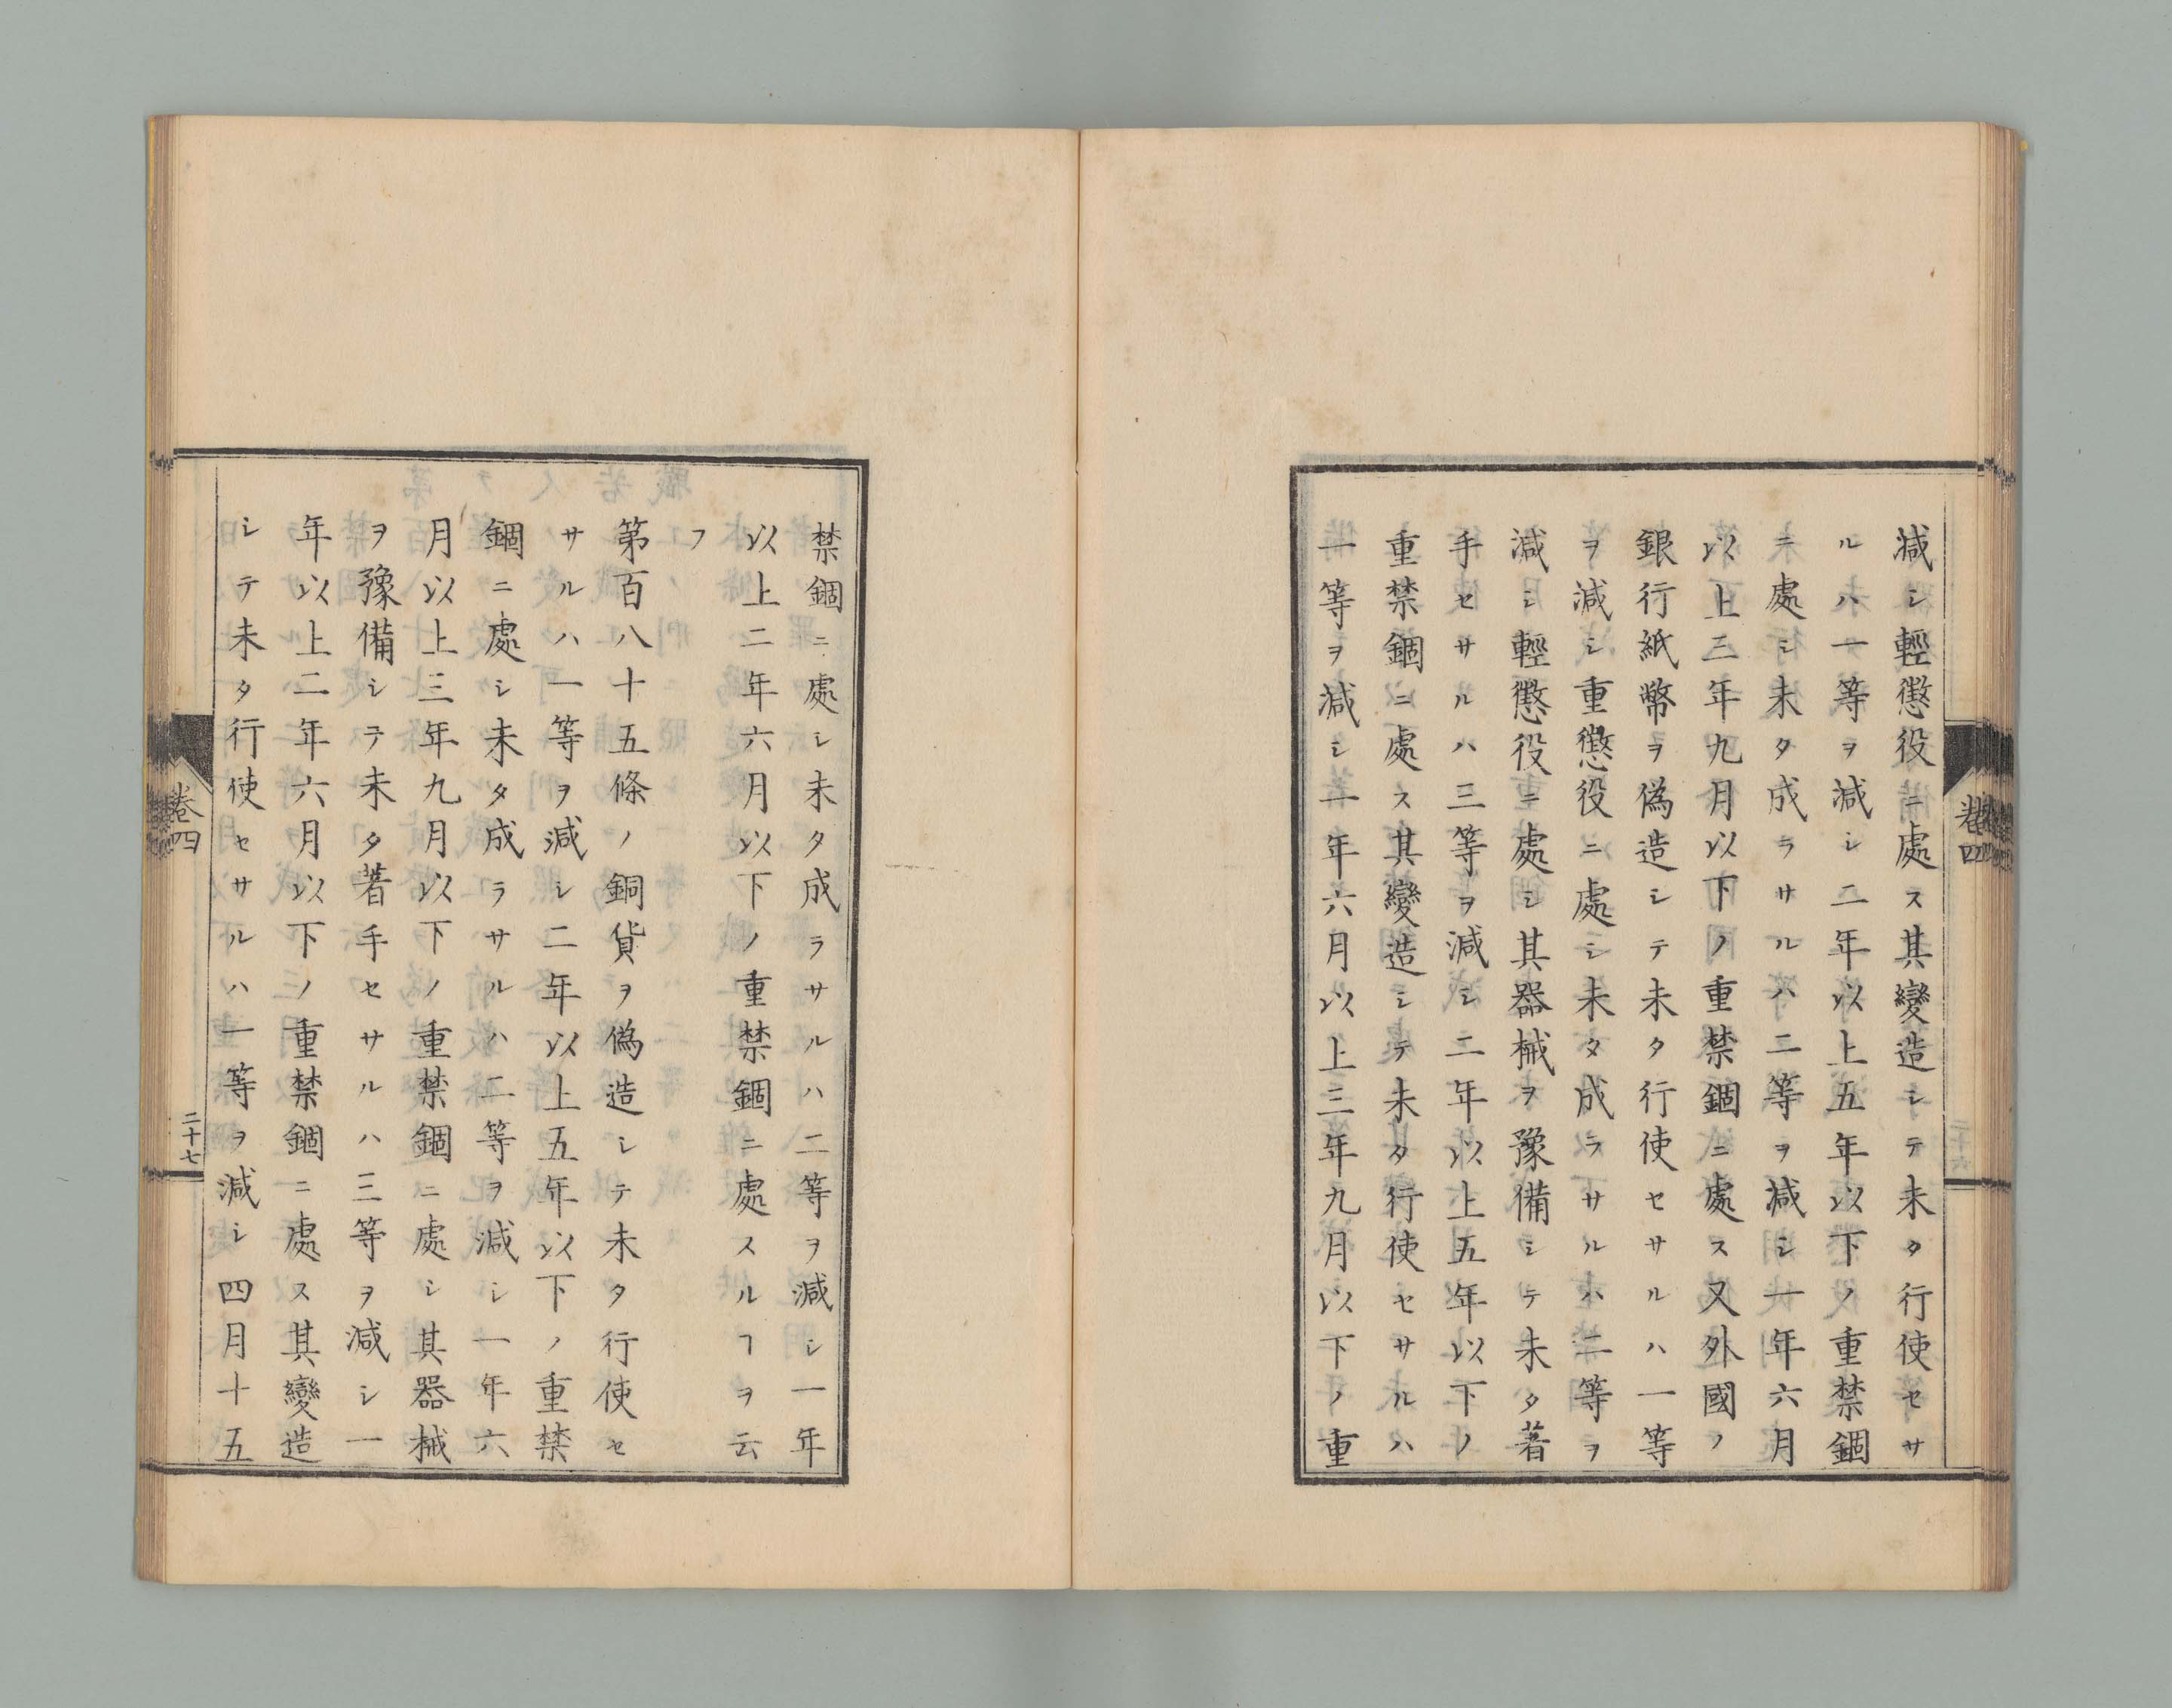 減シ輕懲役ニ處ス其變造シテ未タ行使セサ
ルハ一等ヲ減シ二年以上五年以下ノ重禁錮
ニ處シ未タ成ラサルハ二等ヲ減シ一年六月
以上三年九月以下ノ重禁錮ニ處ス又外國ノ
銀行紙幣ヲ偽造シテ未タ行使セサルハ一等
ヲ減シ重懲役ニ處シ未タ成ラサルハ二等ヲ
減シ輕懲役ニ處シ其器械ヲ豫備シテ未タ著
手セサルハ三等ヲ減シ二年以上五年以下ノ
重禁錮ニ處ス其變造シテ未タ行使セサルハ
一等ヲ減シ一年六月以上三年九月以下ノ重
卷四
禁錮ニ處シ未タ成ラサルハ二等ヲ減シ一年
以上二年六月以下ノ重禁錮ニ處スルヿヲ云
フ
第百八十五條ノ銅貨ヲ偽造シテ未タ行使セ
サルハ一等ヲ減シ二年以上五年以下ノ重禁
錮ニ處シ未タ成ラサルハ二等ヲ減シ一年六
月以上三年九月以下ノ重禁錮ニ處シ其器械
ヲ豫備シテ未タ著手セサルハ三等ヲ減シ一
年以上二年六月以下ノ重禁錮ニ處ス其變造
シテ未タ行使セサルハ一等ヲ減シ四月十五
卷四
二十七